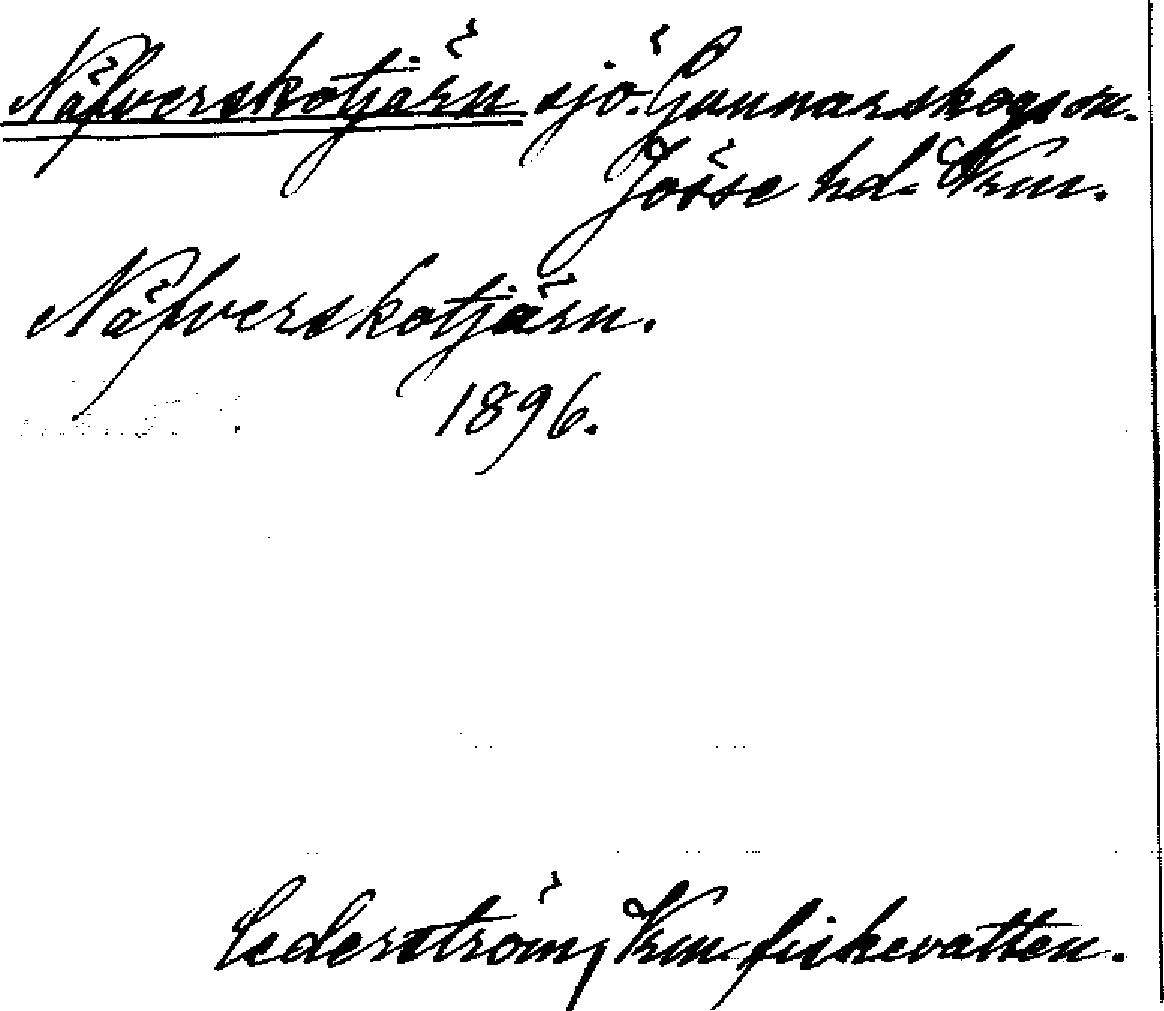 Näfverskotjärn sjö. Gunnarskogs sn.
Jösse hd. Vrm.
Näfverskotjärn.
1896.
Cederström, Vrm. fiskevatten.